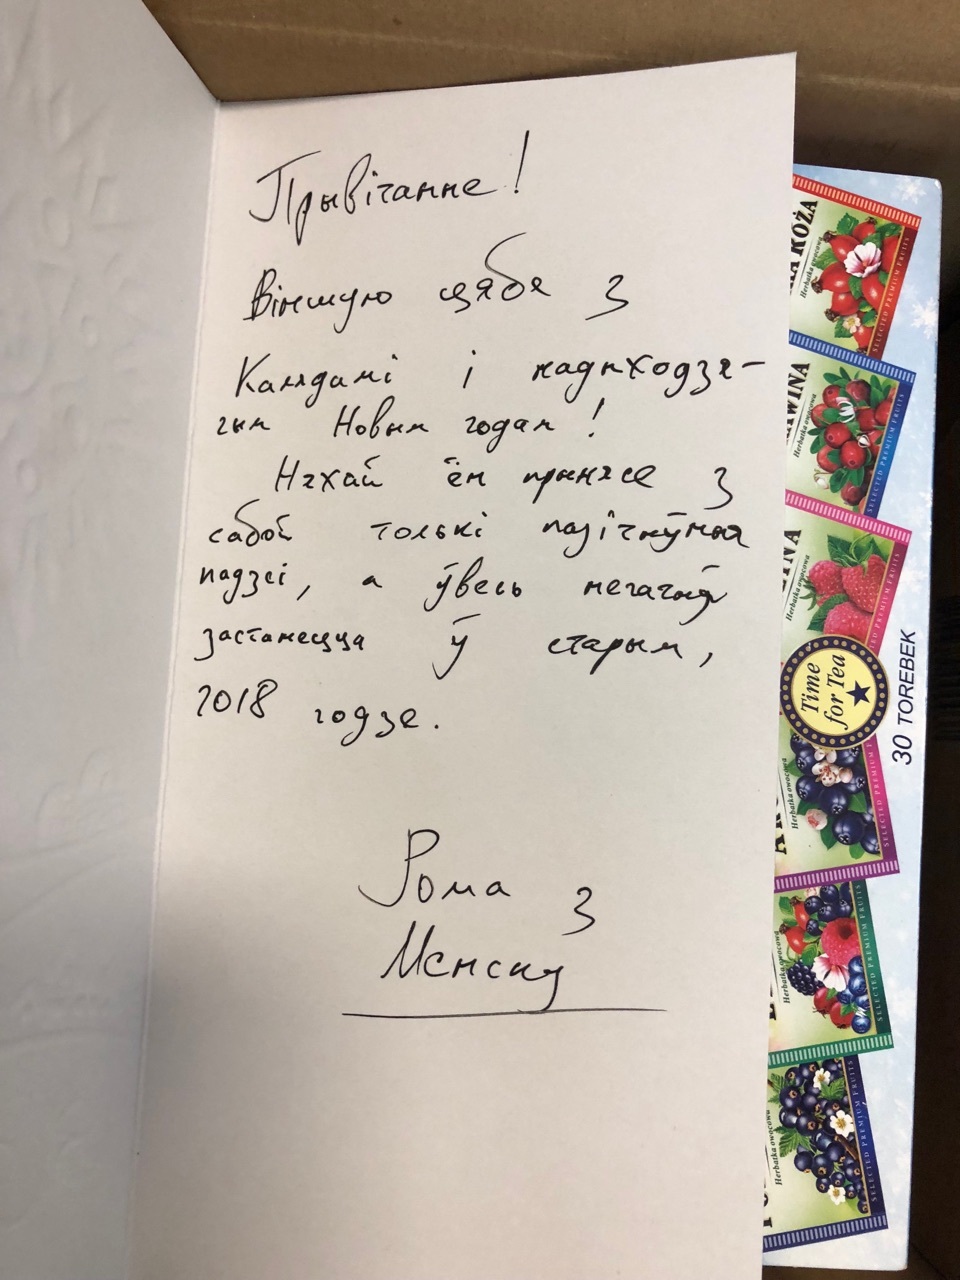 Прывітанне!
Віншую цябе з
Калядамі і надыходзя-
чым Новым годам!
Няхай ён прынясе з
сабой толькі пазітыўныя
падзеі, а ўвесь негатыў
застанецца ў старым,
2018 годзе.
Рома з
Менску
RÓŻA
Herbatka owocowa
SELECTED PREMIUM FRUITS
Herbatka owocowa
SELECTED PREMIUM FRUITS
Herbatka owocowa
SELECTED PREMIUM FRUITS
Time
for Tea
30 TOREBEK
Herbatka owocowa
SELECTED PREMIUM FRUITS
Herbatka owocowa
SELECTED PREMIUM FRUITS
Herbatka owocowa
SELECTED PREMIUM FRUITS